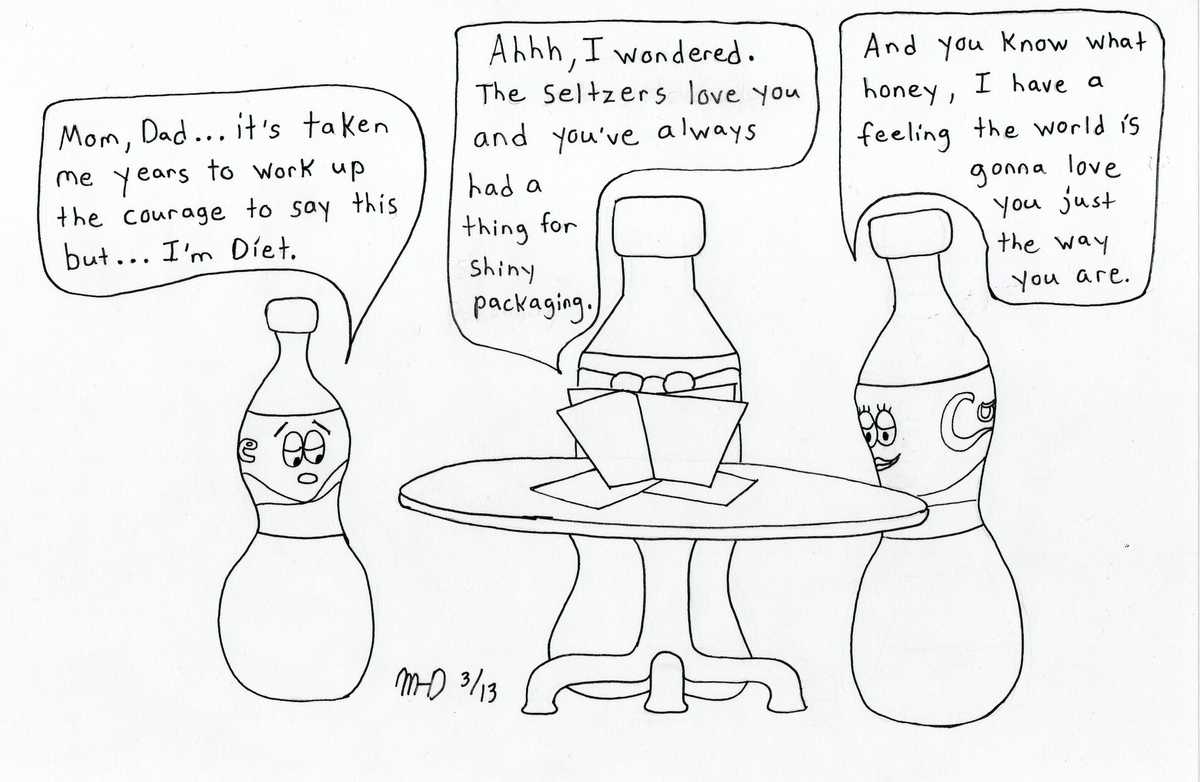 Mom, Dad... it's taken
me years to work up
the courage to say this
but... I'm Diet.
Ahhh, I wondered.
The Seltzers love you
and you've always
had a
thing for
shiny
packaging.
And you know what
honey, I have a
feeling the world is
gonna love
you just
the way
you are.
e
M-D 3/13